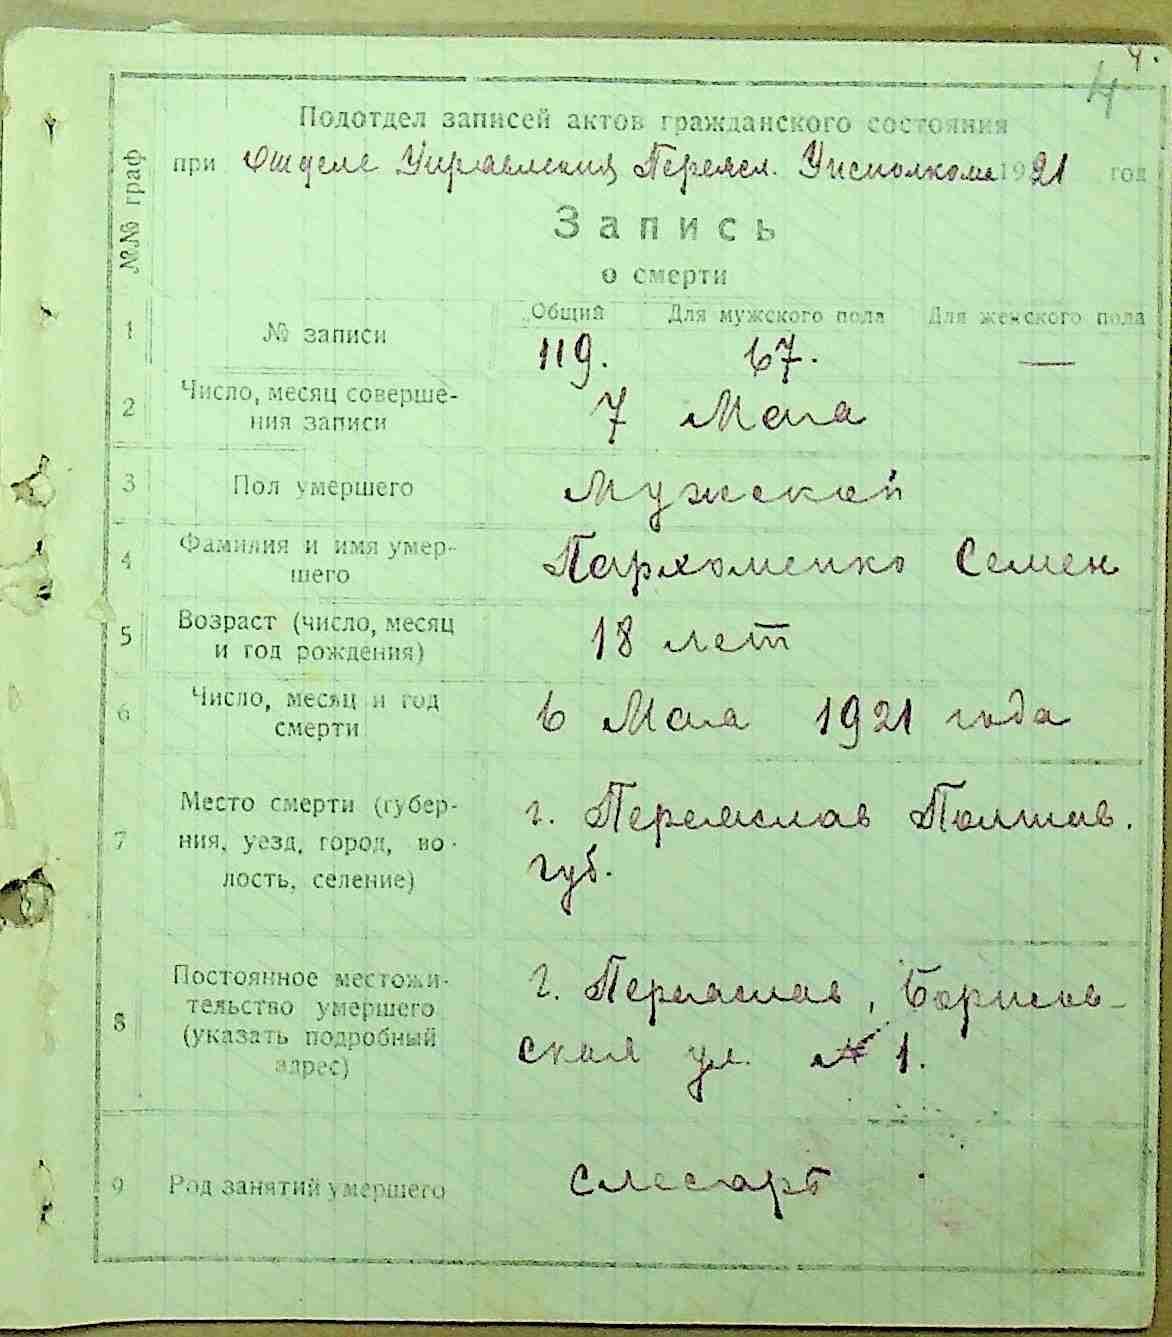 4.
4
Подотдел записей актов гражданского состояния
при Отделе Управления Переясл. Уисполкома 1921 год
Запись
о смерти
№№ граф
Общий Для мужского пола Для женского пола
1 № записи 119. 67. —
2 Число, месяц соверше-
ния записи 7 Мая
3 Пол умершего Мужской
4 Фамилия и имя умер-
шего Пархоменко Семен
5 Возраст (число, месяц
и год рождения) 18 лет
6 Число, месяц и год
смерти 6 Мая 1921 года
7 Место смерти (губер-
ния, уезд, город, во-
лость, селение) г. Переяслав Полтав.
губ.
8 Постоянное местожи-
тельство умершего
(указать подробный
адрес) г. Переяслав, Борисов-
ская ул. № 1.
9 Род занятий умершего слесарь